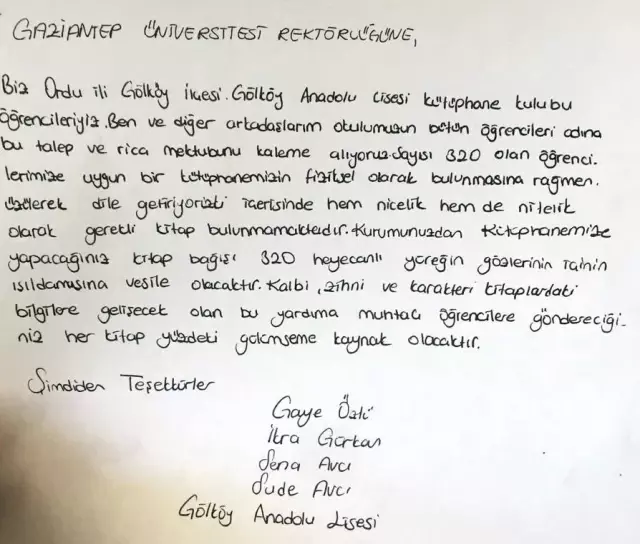 GAZİANTEP ÜNİVERSİTESİ REKTÖRLÜĞÜNE,
Biz Ordu ili Gölköy ilçesi. Gölköy Anadolu Lisesi kütüphane kulubu
öğrencileriyiz. Ben ve diğer arkadaşlarım okulumuzun bütün öğrencileri adına
bu talep ve rica mektubunu kaleme alıyoruz. Sayısı 320 olan öğrenci.
lerimize uygun bir kütüphanemizin fiziksel olarak bulunmasına rağmen.
üzülerek dile getiriyoruz ki içerisinde hem nicelik hem de nitelik
olarak gerekli kitap bulunmamaktadır. Kurumunuzdan kütüphanemize
yapacağınız kitap bağışı 320 heyecanlı yüreğin gözlerinin içinin
ışıldamasına vesile olacaktır. Kalbi, zihni ve karakteri kitaplardaki
bilgilere gelişecek olan bu yardıma muhtaç öğrencilere göndereceği-
niz her kitap yüzdeki gülümseme kaynak olacaktır.
Şimdiden Teşekkürler
Gaye Özlü
İkra Gürkan
Sena Avcı
Sude Avcı
Gölköy Anadolu Lisesi